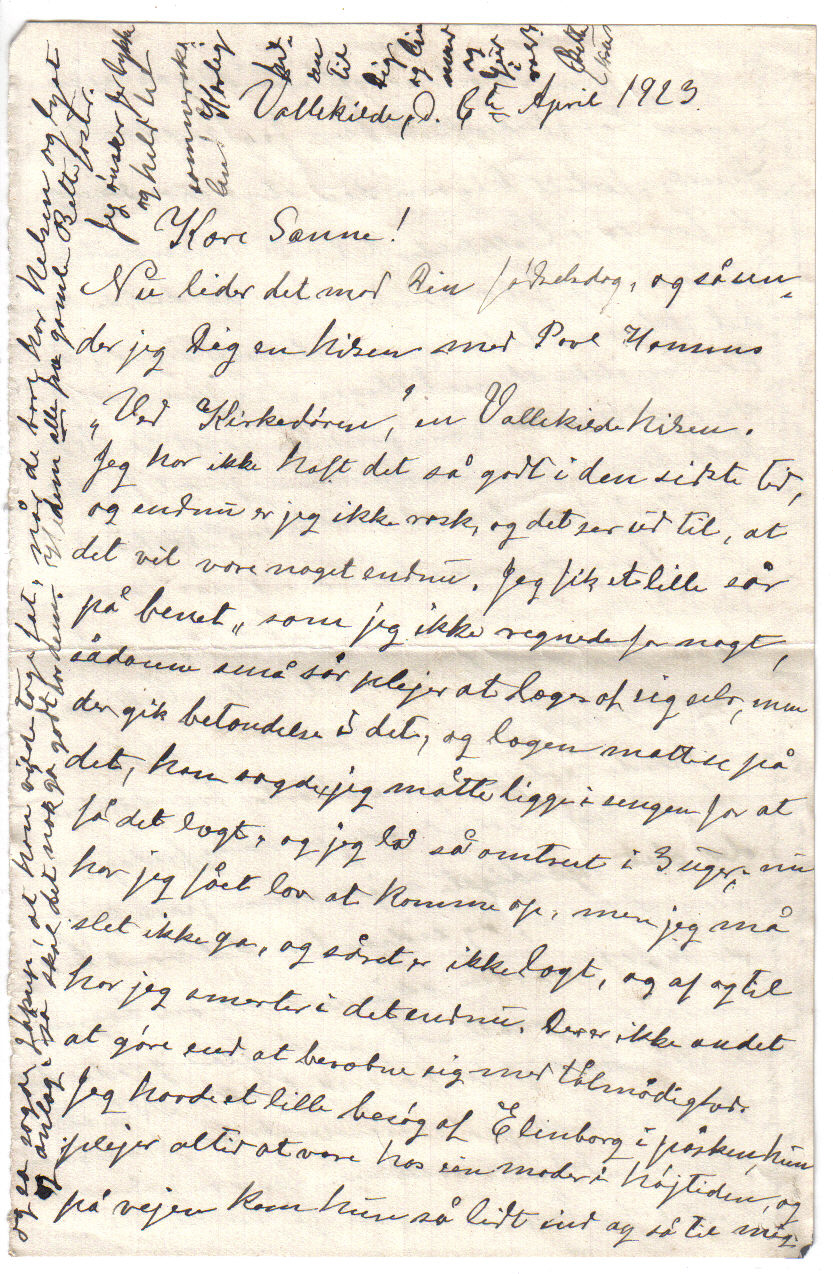 Vallekilde, d. 6te April 1923.
Kære Sanne!
Nu lider det mod Din fødselsdag, og så sen-
der jeg Dig en hilsen med Povl Hannus
„Ved Kirkedøren,” en Vallekilde hilsen.
Jeg har ikke haft det så godt i den sidste tid,
og endnu er jeg ikke rask, og det ser ud til, at
det vil vare noget endnu. Jeg fik et lille sår
på benet, som jeg ikke regnede for nogt,
sådanne små sår plejer at læges af sig selv, men
der gik betændelse i det, og lægen måtte se på
det, han sagde, jeg måtte ligge i sengen for at
få det lægt, og jeg lå så omtrent i 3 uger, nu
har jeg fået lov at komme op, men jeg må
slet ikke gå, og såret er ikke lægt, og af og til
har jeg smerter i det endnu. Der er ikke andet
at gøre end at bevæbne sig med tålmodighed.
Jeg havde et lille besøg af Elinborg i påsken, hun
plejer altid at være hos sin moder i højtiden, og
på vejen kom hun så lidt ind og så til mig.
når de bare har helsen og lyst
og anlæg, så skal det nok gå godt for dem. Hils dem alle fra gamle Bette foster.
Jeg ønsker Jer lykke
og held til
sommerens
til
Dig
og
med
og